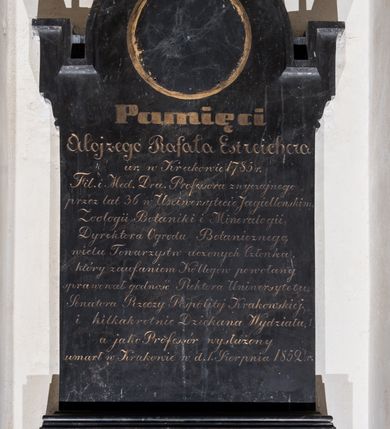 Pamięci
Alojzego Rafała Estreichera
ur. w Krakowie 1785 r.
Fil. i Med. Dra. Profesora zwyczajnego
przez lat 36 w Uniwersytecie Jagiellońskim,
Zoologii Botaniki i Mineralogii,
Dyrektora Ogrodu Botanicznego,
wielu Towarzystw uczonych Członka,
który zaufaniem Kollegów powołany
sprawował godność Rektora Uniwersytetu,
Senatora Rzeczy Pospolitej Krakowskiej,
i kilkakrotnie Dziekana Wydziału,
a jako Profesór wysłużony
umarł w Krakowie w d. 1. Sierpnia 1852 r.